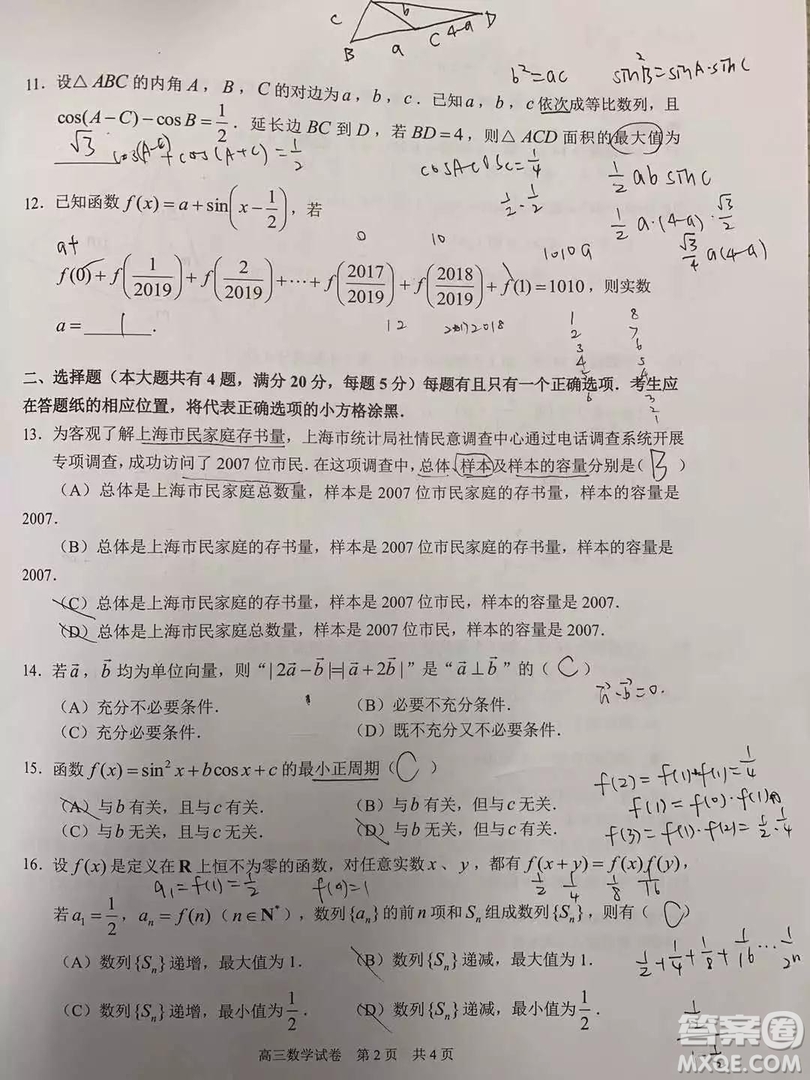 c b D
B a C 4-a
b²=ac sin²B=sinA·sinC
11. 设△ABC的内角A，B，C的对边为a，b，c．已知a，b，c依次成等比数列，且
cos(A−C)−cosB=1/2．延长边BC到D，若BD=4，则△ACD面积的最大值为
√3 cos(A-C)+cos(A+C)=1/2
cosAcosC=1/4
1/2·1/2
1/2 ab sinC
1/2 a·(4-a)·√3/2
√3/4 a(4-a)
12. 已知函数f(x)=a+sin(x−1/2)，若
a+ 0 10 1010a
f(0)+f(1/2019)+f(2/2019)+···+f(2017/2019)+f(2018/2019)+f(1)=1010，则实数
a=___1___．
12 2017 2018
1 8
2 7
3 6
4 5
二、选择题（本大题共有4题，满分20分，每题5分）每题有且只有一个正确选项．考生应
在答题纸的相应位置，将代表正确选项的小方格涂黑．
13. 为客观了解上海市民家庭存书量，上海市统计局社情民意调查中心通过电话调查系统开展
专项调查，成功访问了2007位市民．在这项调查中，总体、样本及样本的容量分别是（ B ）
（A）总体是上海市民家庭总数量，样本是2007位市民家庭的存书量，样本的容量是
2007．
（B）总体是上海市民家庭的存书量，样本是2007位市民家庭的存书量，样本的容量是
2007．
（C）总体是上海市民家庭的存书量，样本是2007位市民，样本的容量是2007．
（D）总体是上海市民家庭总数量，样本是2007位市民，样本的容量是2007．
14. 若a⃗，b⃗均为单位向量，则“|2a⃗−b⃗|=|a⃗+2b⃗|”是“a⃗⊥b⃗”的（ C ）
a⃗·b⃗=0.
（A）充分不必要条件． （B）必要不充分条件．
（C）充分必要条件． （D）既不充分又不必要条件．
15. 函数f(x)=sin²x+bcosx+c的最小正周期（ C ）
（A）与b有关，且与c有关． （B）与b有关，但与c无关．
（C）与b无关，且与c无关． （D）与b无关，但与c有关．
f(2)=f(1)·f(1)=1/4
f(1)=f(0)·f(1)
f(3)=f(1)·f(2)=1/2·1/4
16. 设f(x)是定义在R上恒不为零的函数，对任意实数x、y，都有f(x+y)=f(x)f(y)，
a₁=f(1)=1/2 f(0)=1 1/2 1/4 1/8 1/16
若a₁=1/2，aₙ=f(n)（n∈N*），数列{aₙ}的前n项和Sₙ组成数列{Sₙ}，则有（ C ）
（A）数列{Sₙ}递增，最大值为1． （B）数列{Sₙ}递减，最大值为1．
（C）数列{Sₙ}递增，最小值为1/2． （D）数列{Sₙ}递减，最小值为1/2．
1/2+1/4+1/8+1/16···1/2ⁿ
高三数学试卷 第2页 共4页
答案圈
MXQE.COM